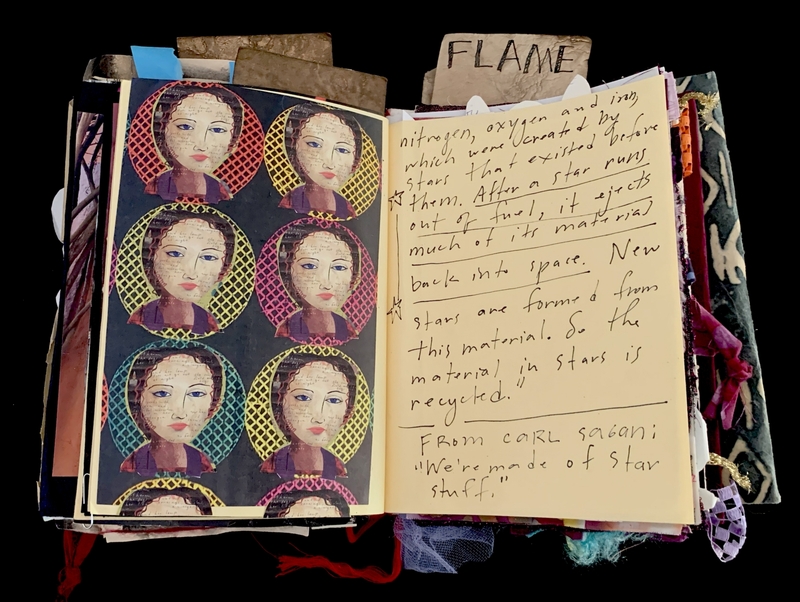 FLAME
nitrogen, oxygen and iron,
which were created by
stars that existed before
them. After a star runs
out of fuel, it ejects
much of its material
back into space. New
stars are formed from
this material. So the
material in stars is
recycled."
FROM CARL SAGAN:
"We're made of star
stuff."